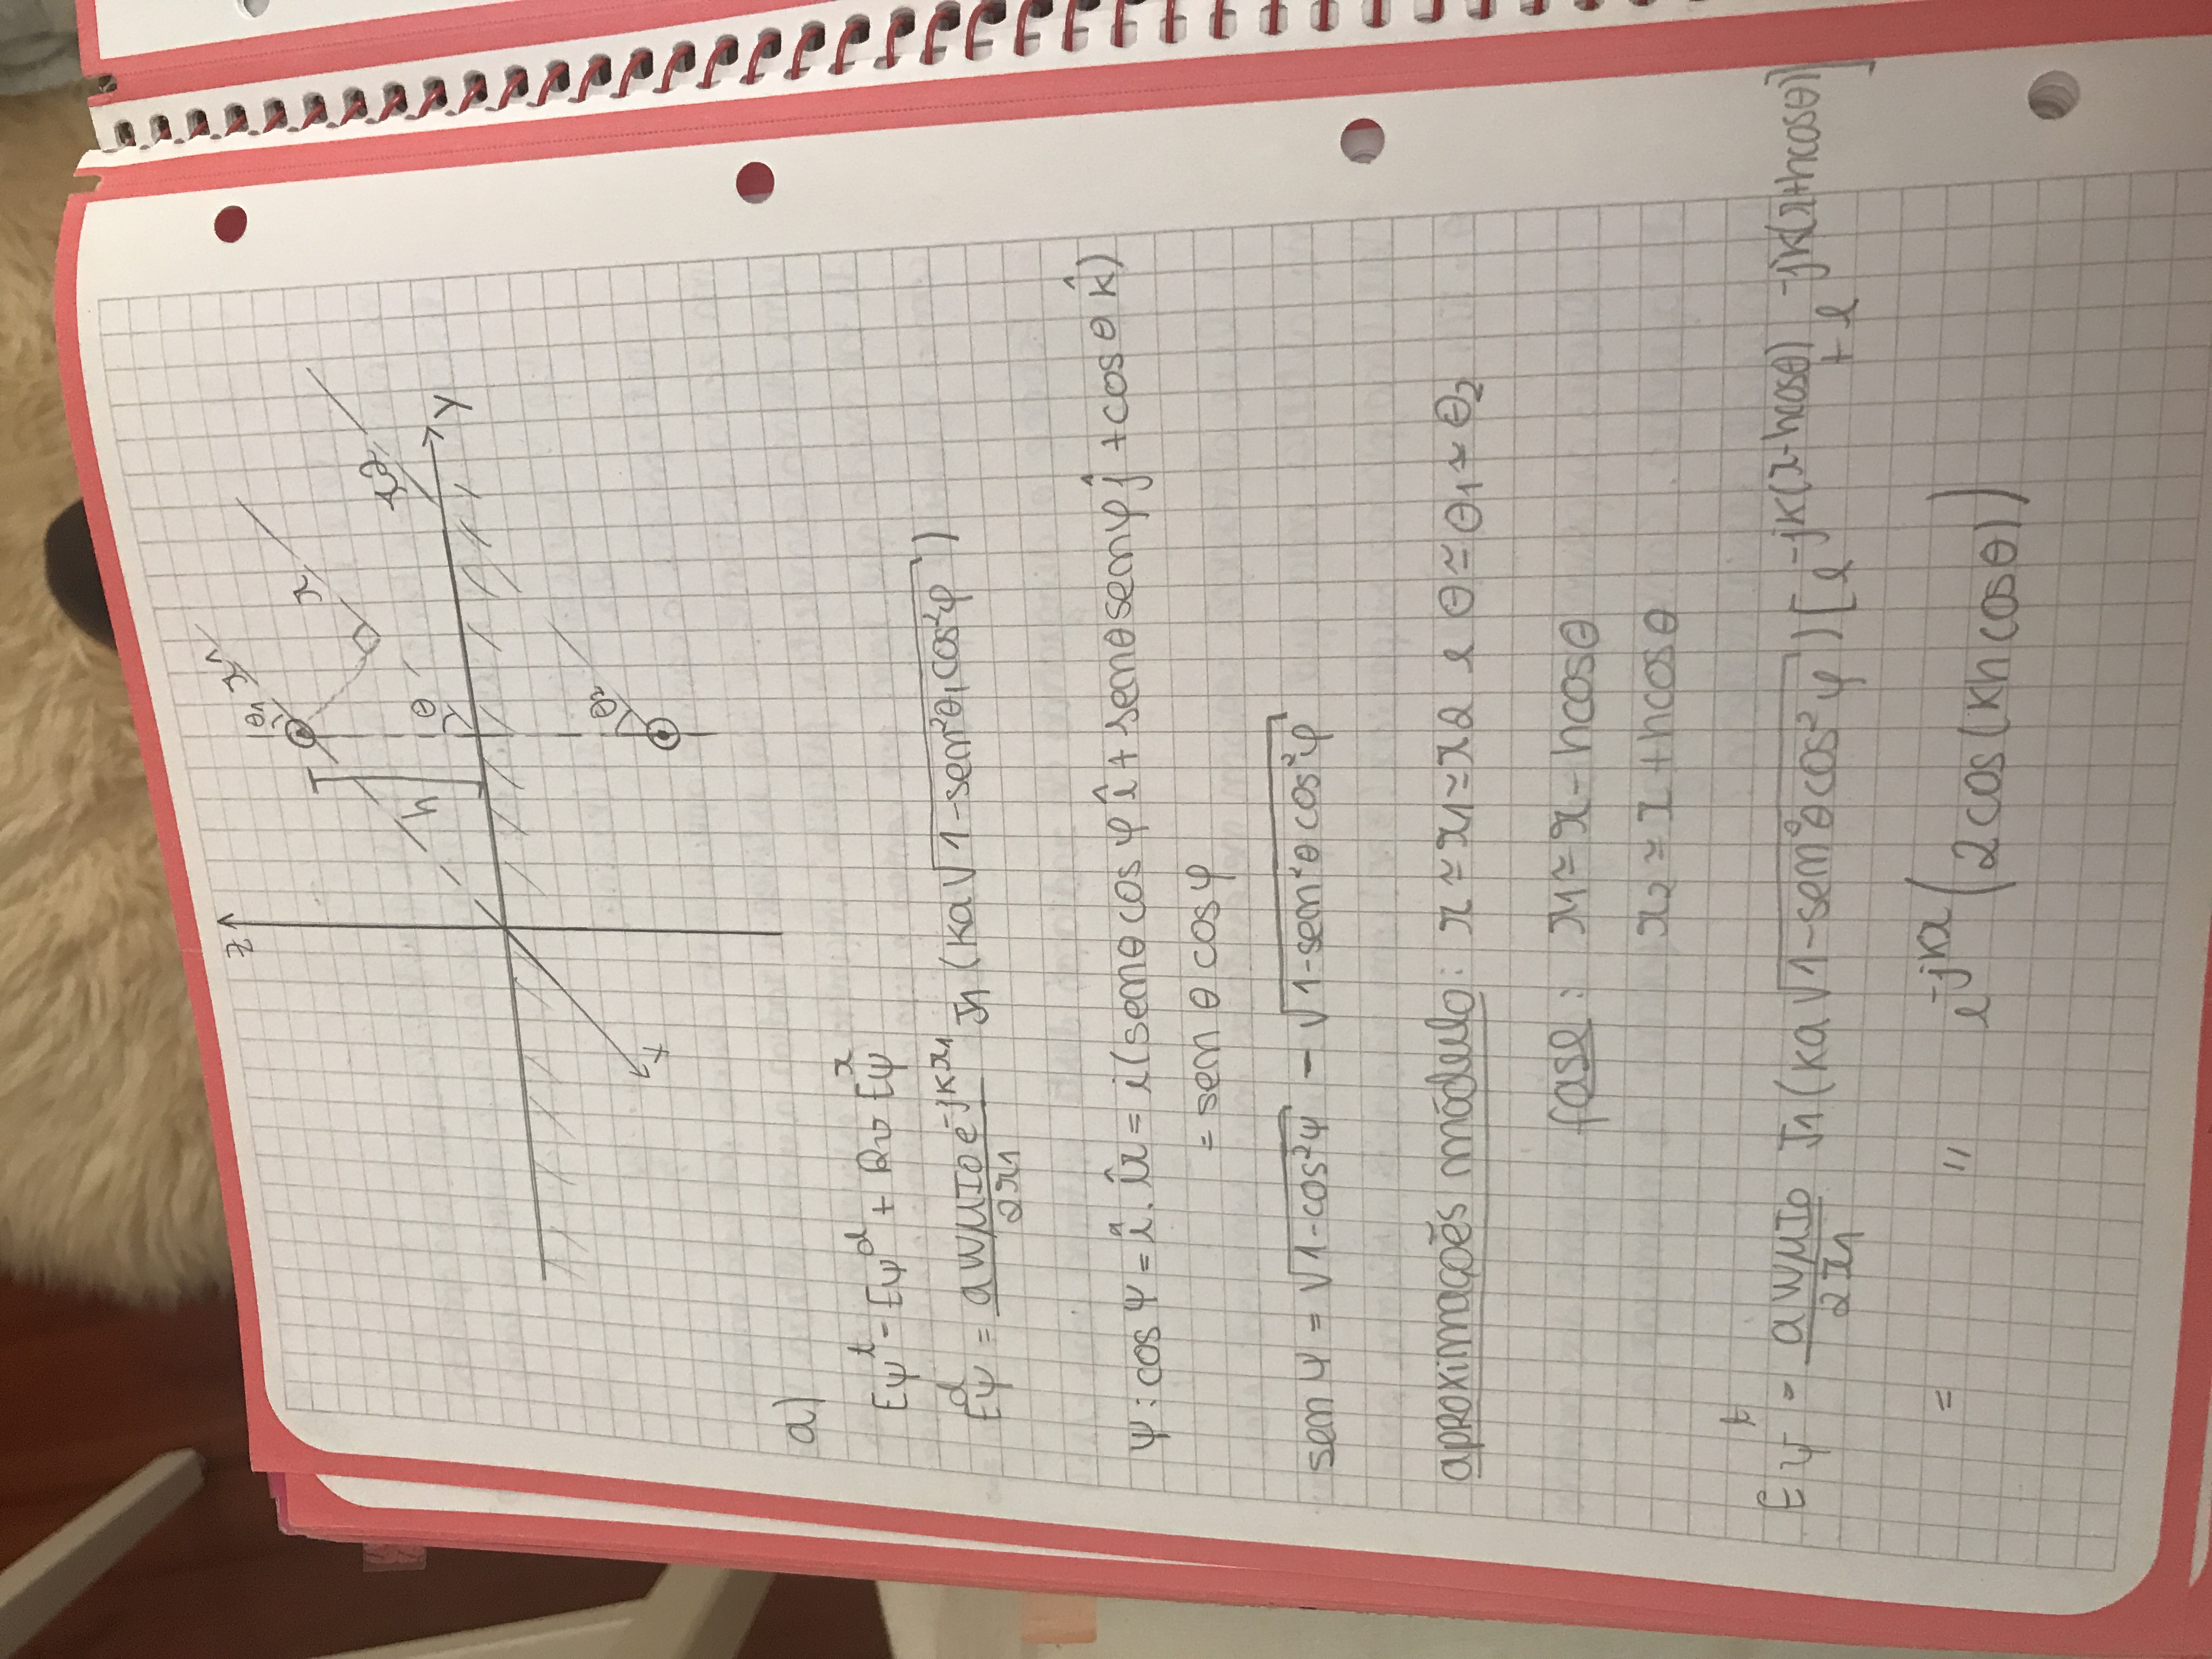 z
θ₁ r1
r
h
θ
r2
y
θ₂
x
a)
Eψᵗ = Eψᵈ + Rv Eψʳ
Eψᵈ = aWμI₀e^(-jkr1)/2r1 J1(ka√(1-sen²θ₁cos²φ))
ψ: cosψ = î.îr = i(senθcosφ î + senθsenφ ĵ + cosθ k̂)
= senθcosφ
senψ = √(1-cos²ψ) = √(1-sen²θcos²φ)
aproximações módulo: r ≃ r1 ≃ r2 e θ ≃ θ₁ ≃ θ₂
fase: r1 ≃ r - hcosθ
r₂ ≃ r + hcosθ
Eψᵗ = aWμI₀/2r1 J1(ka√(1-sen²θcos²φ))[e^(-jk(r-hcosθ)) + e^(-jk(r+hcosθ))]
= " e^(-jkr)(2cos(khcosθ))